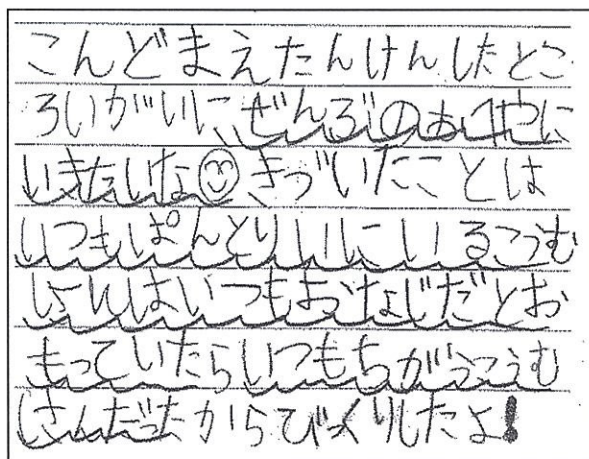 こんどまえたんけんしたとこ
ろいがいに、ぜんぶのおへやに
いきたいな きづいたことは
いつもぱんとりいにいるこうむ
さんはいつもおなじだとお
もっていたらいつもちがうこうむ
さんだったからびっくりしたよ!